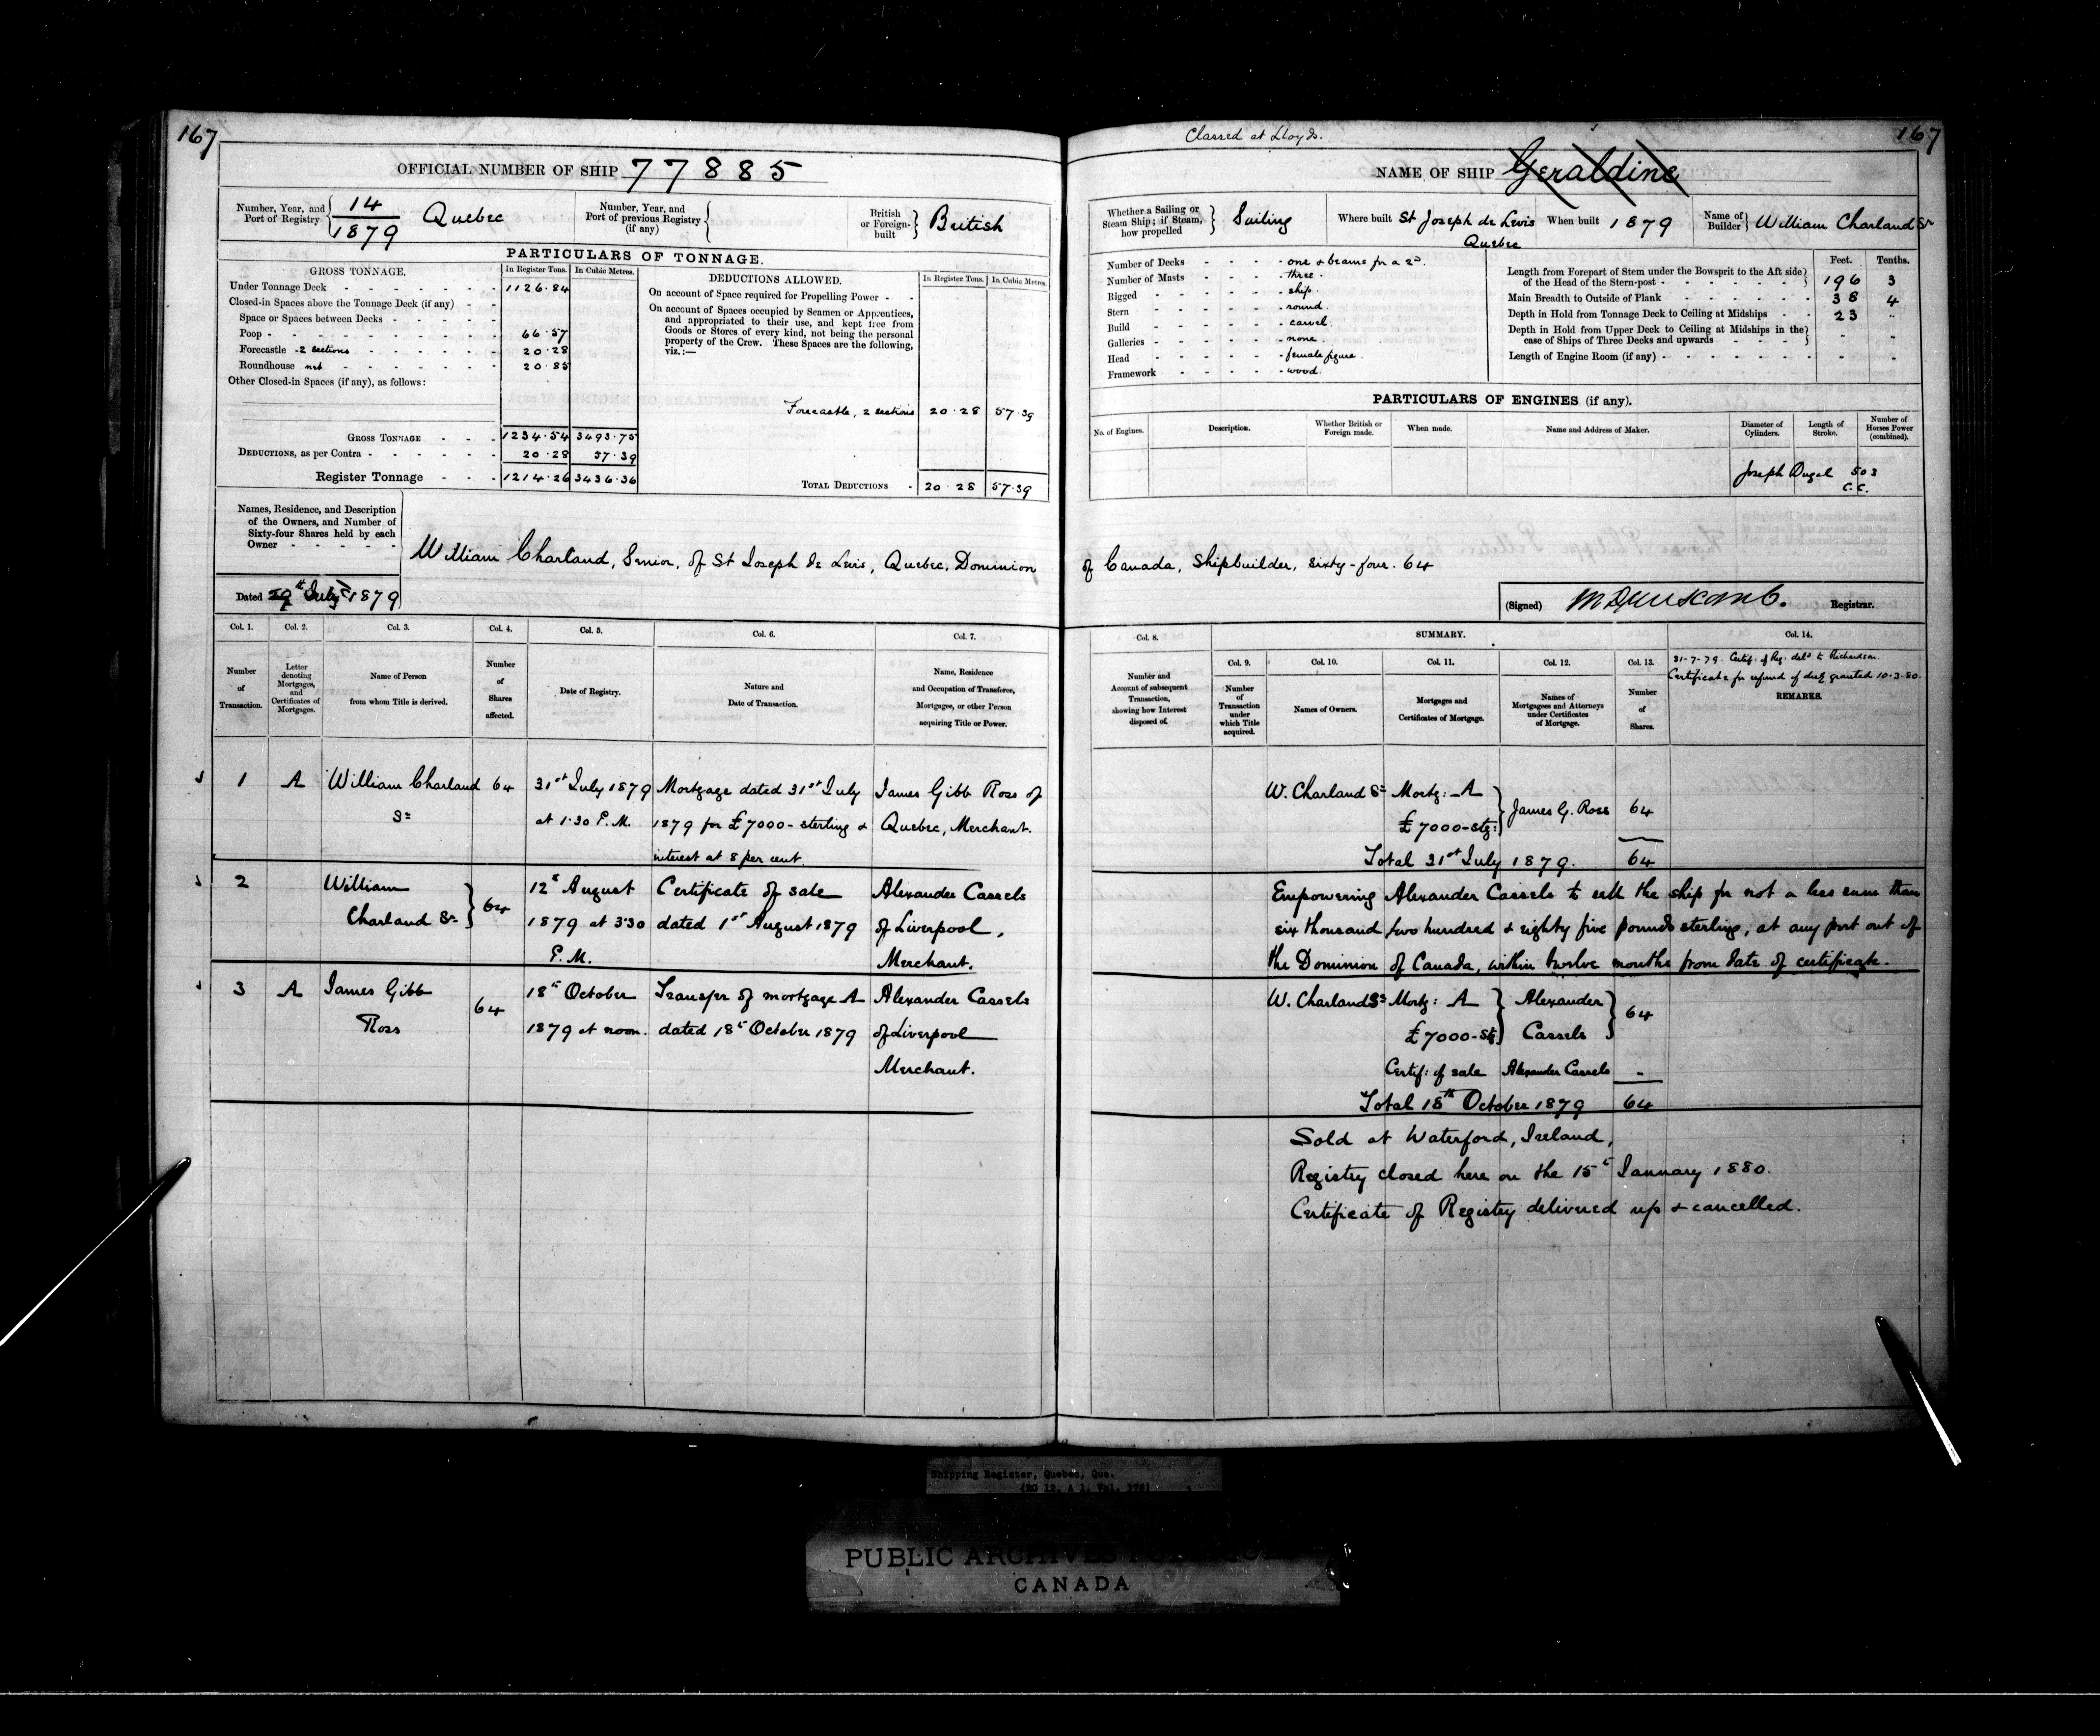 167
OFFICIAL NUMBER OF SHIP 77885
Number, Year, and Port of Registry { 14 / 1879 Quebec
Number, Year, and Port of previous Registry (if any) {
British or Foreign-built } British
PARTICULARS OF TONNAGE.
GROSS TONNAGE. In Register Tons. In Cubic Metres.
Under Tonnage Deck - 1126.84
Closed-in Spaces above the Tonnage Deck (if any) -
Space or Spaces between Decks -
Poop - 66.57
Forecastle - 2 sections - 20.28
Roundhouse - 20.85
Other Closed-in Spaces (if any), as follows:
GROSS TONNAGE - 1234.54 3493.75
DEDUCTIONS, as per Contra - 20.28 57.39
Register Tonnage - 1214.26 3436.36
DEDUCTIONS ALLOWED. In Register Tons. In Cubic Metres.
On account of Space required for Propelling Power -
On account of Spaces occupied by Seamen or Apprentices,
and appropriated to their use, and kept free from
Goods or Stores of every kind, not being the personal
property of the Crew. These Spaces are the following,
viz.:—
Forecastle, 2 sections 20.28 57.39
TOTAL DEDUCTIONS - 20.28 57.39
Names, Residence, and Description
of the Owners, and Number of
Sixty-four Shares held by each
Owner -
William Charland, Senior, of St Joseph de Levis, Quebec, Dominion
Dated 29th July 1879
Col. 1. Col. 2. Col. 3. Col. 4. Col. 5. Col. 6. Col. 7.
Number of Transaction.
Letter denoting Mortgages, and Certificates of Mortgages.
Name of Person from whom Title is derived.
Number of Shares affected.
Date of Registry.
Nature and Date of Transaction.
Name, Residence and Occupation of Transferee, Mortgagee, or other Person acquiring Title or Power.
1 A William Charland 64 31st July 1879 Mortgage dated 31st July James Gibb Ross of
Sr at 1.30 P.M. 1879 for £7000- sterling & Quebec, Merchant.
interest at 8 per cent.
2 William 12th August Certificate of sale Alexander Cassels
Charland Sr } 64 1879 at 3.30 dated 1st August 1879 of Liverpool,
P.M. Merchant.
3 A James Gibb 64 18th October Transfer of mortgage A Alexander Cassels
Ross 1879 at noon. dated 18th October 1879 of Liverpool
Merchant.
Classed at Lloyds.
167
NAME OF SHIP Geraldine
Whether a Sailing or Steam Ship; if Steam, how propelled } Sailing
Where built St Joseph de Levis Quebec
When built 1879
Name of Builder } William Charland Sr
Number of Decks - one & beams for a 2d.
Number of Masts - three.
Rigged - ship.
Stern - round.
Build - carvel.
Galleries - none.
Head - female figure.
Framework - wood.
Feet. Tenths.
Length from Forepart of Stem under the Bowsprit to the Aft side
of the Head of the Stern-post - } 196 3
Main Breadth to Outside of Plank - 38 4
Depth in Hold from Tonnage Deck to Ceiling at Midships - 23 "
Depth in Hold from Upper Deck to Ceiling at Midships in the
case of Ships of Three Decks and upwards - } - -
Length of Engine Room (if any) - - -
PARTICULARS OF ENGINES (if any).
No. of Engines. Description. Whether British or Foreign made. When made. Name and Address of Maker. Diameter of Cylinders. Length of Stroke. Number of Horses Power (combined).
Joseph Dugal 503
C.C.
of Canada, Shipbuilder, sixty-four. 64
(Signed) Registrar.
SUMMARY.
Col. 8. Col. 9. Col. 10. Col. 11. Col. 12. Col. 13. Col. 14.
Number and Account of subsequent Transaction, showing how Interest disposed of.
Number of Transaction under which Title acquired.
Names of Owners.
Mortgages and Certificates of Mortgage.
Names of Mortgagees and Attorneys under Certificates of Mortgage.
Number of Shares.
31-7-79. Certif. of Reg. deld to Richardson.
Certificate for refund of duty granted 10.3.80.
REMARKS.
W. Charland Sr Mortg: A } James G. Ross 64
£7000-stg:
Total 31st July 1879. 64
Empowering Alexander Cassels to sell the ship for not a less sum than
six thousand two hundred & eighty five pounds sterling, at any port out of
the Dominion of Canada, within twelve months from date of certificate.
W. Charland Sr Mortg: A } Alexander } 64
£7000-stg Cassels
Certif: of sale Alexander Cassels -
Total 18th October 1879 64
Sold at Waterford, Ireland,
Registry closed here on the 15th January 1880.
Certificate of Registry delivered up & cancelled.
Shipping Register, Quebec, Que.
(RG 12, A 1, Vol. 176)
PUBLIC ARCHIVES
CANADA